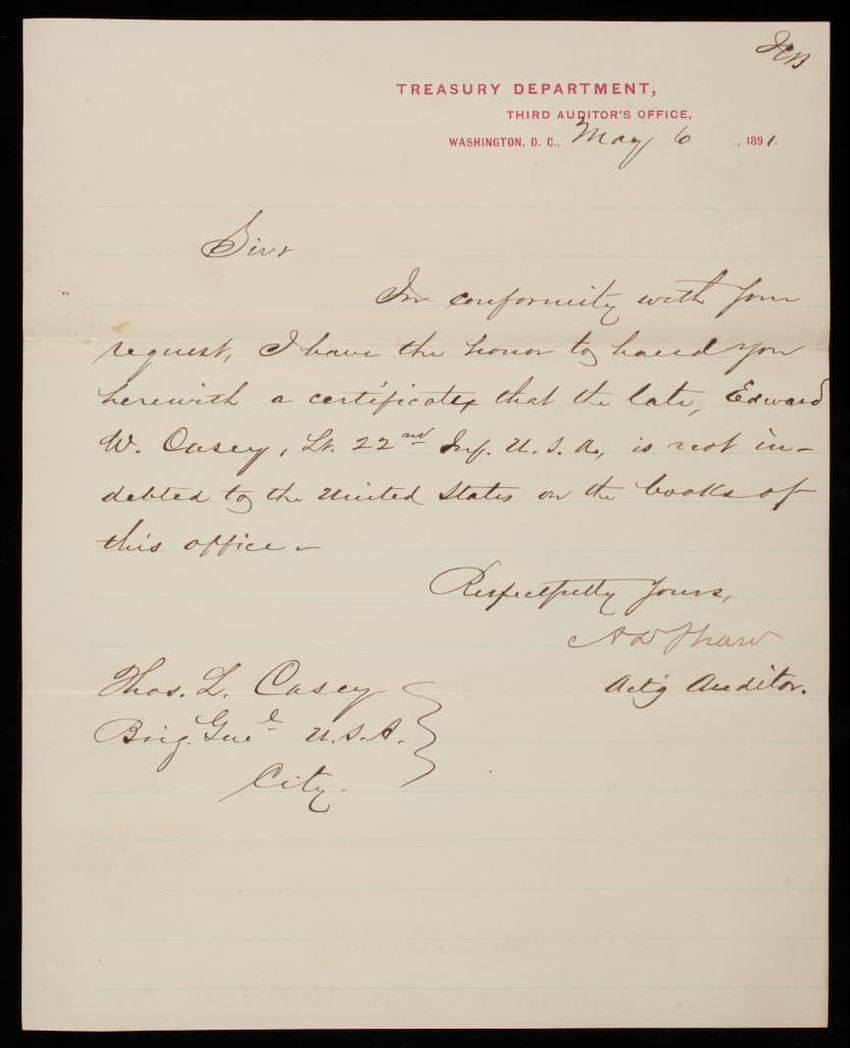 TREASURY DEPARTMENT,
THIRD AUDITOR'S OFFICE,
WASHINGTON, D. C., May 6, 1891.
Sir:
In conformity with your
request, I have the honor to hand you
herewith a certificate, that the late, Edward
W. Casey, Lt. 22nd Inf. U.S.A., is not in-
debted to the United States on the books of
this office.
Respectfully yours,
A D Shaw
Act'g Auditor.
Thos. L. Casey
Brig. Gen'l U.S.A.
City.